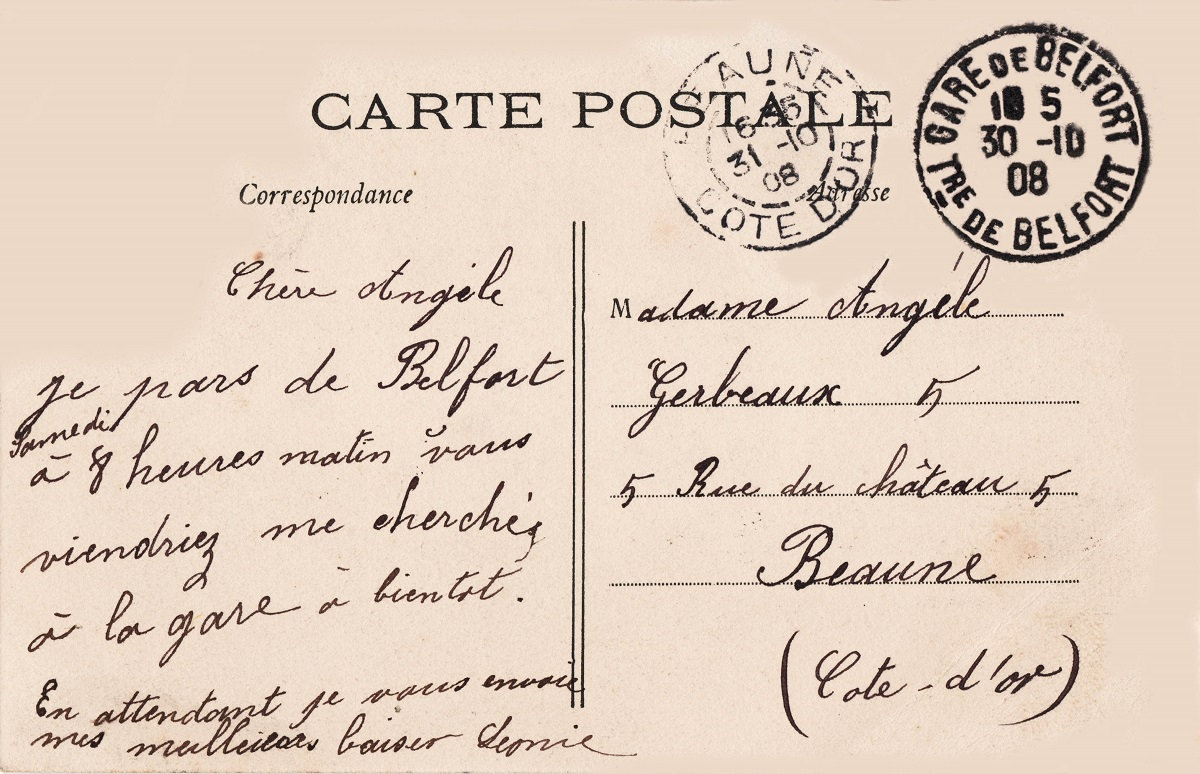 CARTE POSTALE
Correspondance
Adresse
BEAUNE
16 35
31 -10
08
COTE D'OR
GARE DE BELFORT
5
30 -10
08
Tre DE BELFORT
Chère Angèle
je pars de Belfort
Samedi
à 8 heures matin vous
viendriez me cherchéz
à la gare à bientot.
En attendant je vous envoie
mes meilleurs baiser Leonie
Madame Angéle
Gerbeaux 5
5 Rue du château 5
Beaune
(Cote-d'or)